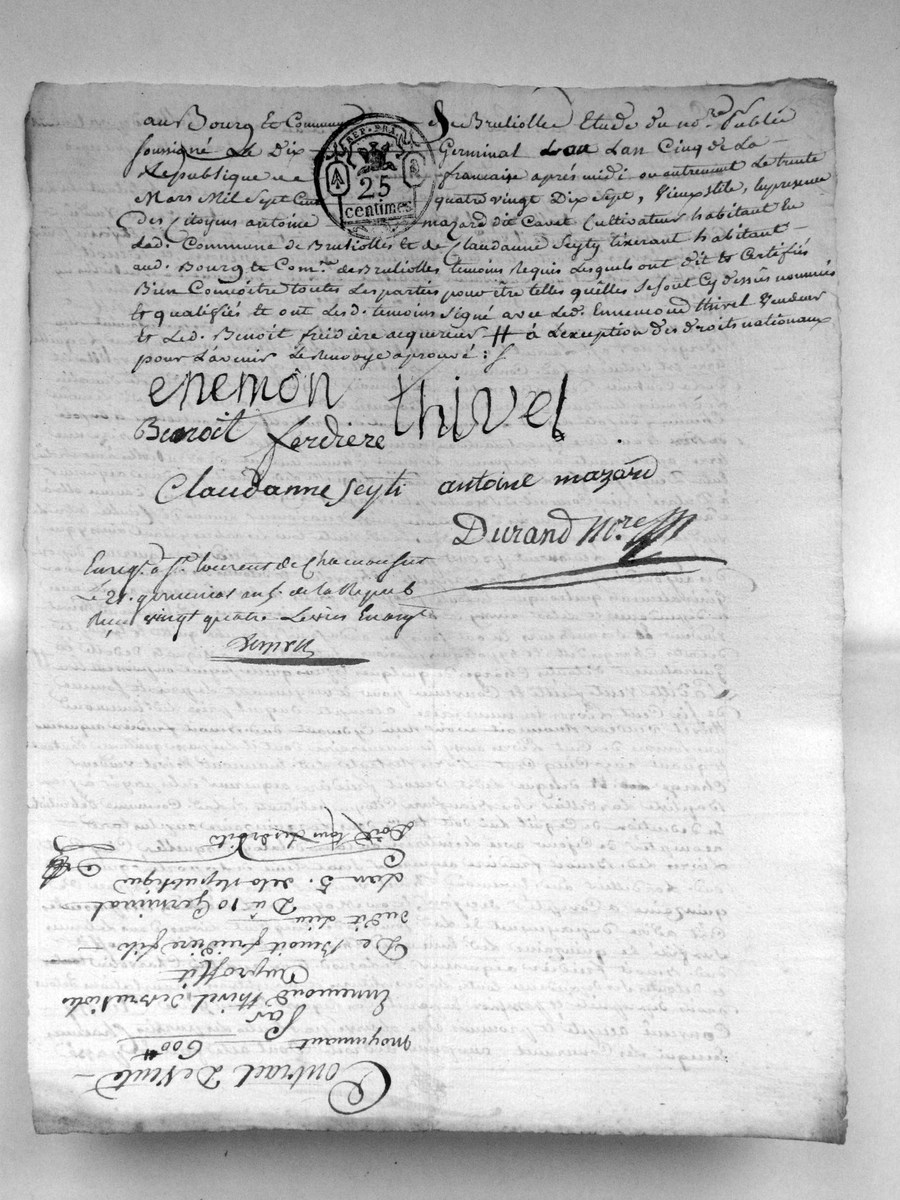 au Bourg et Commune de Bruliolle Etude du no.re Public
soussigné Le Dix Germinal Lan Cinq de La
Republique francaise après midi ou autrement Le trente
Mars Mil Sept Cent quatre vingt Dix Sept, Vieux stile, En presence
des Citoyens antoine mazard dit Cavet Cultivateur habitant En
Lad. Commune de Brulioles et de Claudanne Seyty tixerant habitant
aud. Bourg et Com.ne de Brulioles temoins Requis Lesquels ont dit et Certifiés
Bien Connoître toutes Les parties pour être telles quelles se sont Cy dessès nommés
et qualifiés et ont Les d. temoins signé avec Led. Ennemond thivel Vendeur
et Led. Benoit freidiere acquereur # à Lexception des droits nationaux
pour Lavenir Le Renvoye aprouvé :
REP. FRA.
25
centimes
enemon thivel
Benoit ferdiere
Claudanne Seyti antoine mazard
Durand No.re
Enreg.t a S.t Laurent de Chamousset
Le 21 germinal an 5. de la Repub
Reçu vingt quatre Livres
Contract De Vente
moyennant 600#
Par
Ennemond thivel de Brulioles
Au proffit
De Benoit freidiere fils
dudit Lieu
Du 10 Germinal
Lan 5. de la Republique